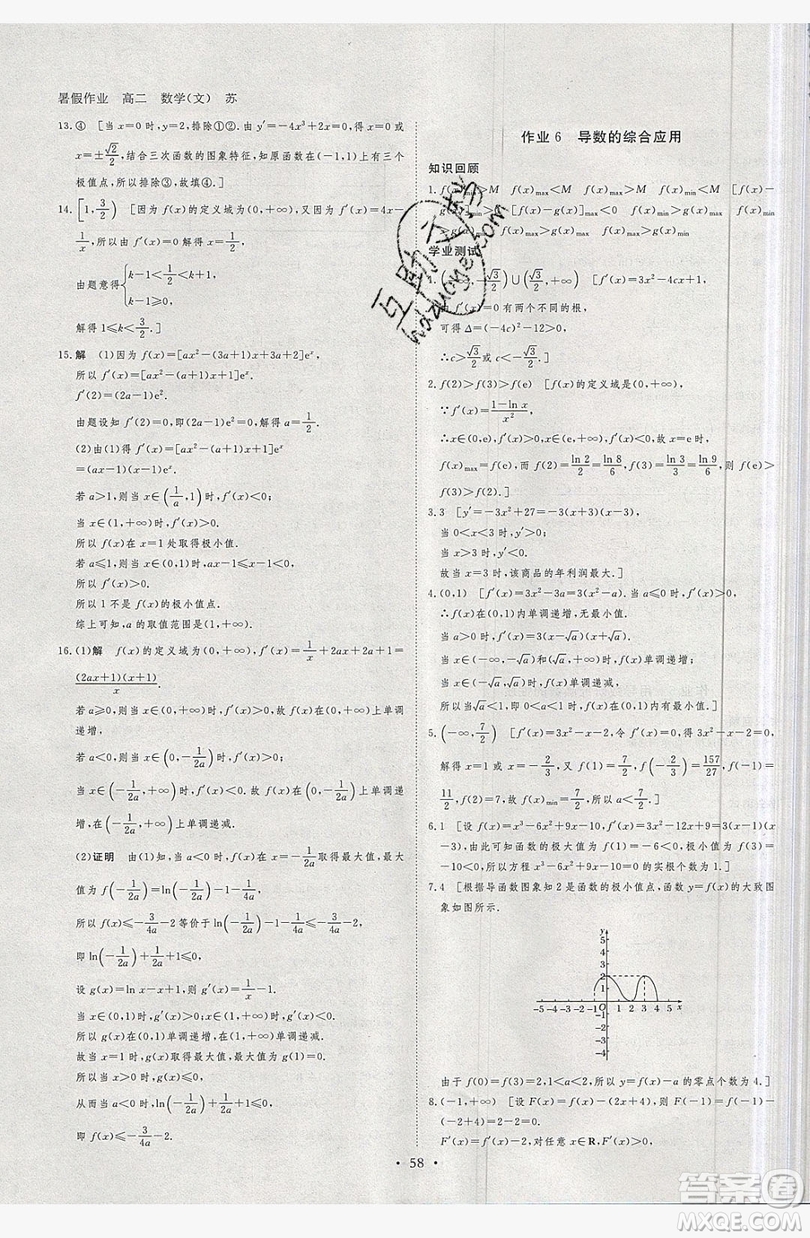 暑假作业 高二 数学(文) 苏
13.④ [当x=0时,y=2,排除①②.由y′=-4x³+2x=0,得x=0或
x=±√2/2,结合三次函数的图象特征,知原函数在(-1,1)上有三个
极值点,所以排除③,故填④.]
14.[1,3/2) [因为f(x)的定义域为(0,+∞),又因为f′(x)=4x-
1/x,由f′(x)=0解得x=1/2,
由题意得{k-1<1/2<k+1, k-1≥0,
解得1≤k<3/2.]
15.解 (1)因为f(x)=[ax²-(3a+1)x+3a+2]eˣ,
所以f′(x)=[ax²-(a+1)x+1]eˣ.
f′(2)=(2a-1)e².
由题设知f′(2)=0,即(2a-1)e²=0,解得a=1/2.
(2)由(1)得f′(x)=[ax²-(a+1)x+1]eˣ
=(ax-1)(x-1)eˣ.
若a>1,则当x∈(1/a,1)时,f′(x)<0;
当x∈(1,+∞)时,f′(x)>0.
所以f(x)在x=1处取得极小值.
若a≤1,则当x∈(0,1)时,ax-1≤x-1<0,
所以f′(x)>0.
所以1不是f(x)的极小值点.
综上可知,a的取值范围是(1,+∞).
16.(1)解 f(x)的定义域为(0,+∞),f′(x)=1/x+2ax+2a+1=
(2ax+1)(x+1)/x.
若a≥0,则当x∈(0,+∞)时,f′(x)>0,故f(x)在(0,+∞)上单调
递增,
若a<0,则当x∈(0,-1/2a)时,f′(x)>0;
当x∈(-1/2a,+∞)时,f′(x)<0.
故f(x)在(0,-1/2a)上单调递增,在(-1/2a,+∞)上单调递减.
(2)证明 由(1)知,当a<0时,f(x)在x=-1/2a取得最大值,最大
值为f(-1/2a)=ln(-1/2a)-1-1/4a.
所以f(x)≤-3/4a-2等价于ln(-1/2a)-1-1/4a≤-3/4a-2,
即ln(-1/2a)+1/2a+1≤0,
设g(x)=ln x-x+1,则g′(x)=1/x-1.
当x∈(0,1)时,g′(x)>0;x∈(1,+∞)时,g′(x)<0.
所以g(x)在(0,1)单调递增,在(1,+∞)单调递减.
故当x=1时,g(x)取得最大值,最大值为g(1)=0.
所以当x>0时,g(x)≤0,
从而当a<0时,ln(-1/2a)+1/2a+1≤0,
即f(x)≤-3/4a-2.
作业6 导数的综合应用
知识回顾
1.f(x)min>M f(x)max<M f(x)max>M f(x)min<M [f(x)-
g(x)]min>0 f(x)min>g(x)max f(x)max>g(x)min
学业测试
∪(√3/2,+∞) [f′(x)=3x²-4cx+1,
f′(x)=0有两个不同的根,
可得Δ=(-4c)²-12>0,
∴c>√3/2或c<-√3/2.]
2.f(2)>f(3)>f(e) [f(x)的定义域是(0,+∞),
∵f′(x)=(1-ln x)/x²,
f(x)max=f(e),f(2)=ln 2/2=ln 8/6,f(3)=ln 3/3=ln 9/6,则f(e)>
f(3)>f(2).]
3.3 [y′=-3x²+27=-3(x+3)(x-3),
当0<x<3时,y′>0;
当x>3时,y′<0.
故当x=3时,该商品的年利润最大.]
4.(0,1) [f′(x)=3x²-3a=3(x²-a).当a≤0时,f′(x)>0,
∴f(x)在(0,1)内单调递增,无最小值.
当a>0时,f′(x)=3(x-√a)(x+√a).
当x∈(-∞,-√a)和(√a,+∞)时,f(x)单调递增;
当x∈(-√a,√a)时,f(x)单调递减,
所以当√a<1,即0<a<1时,f(x)在(0,1)内有最小值.]
5.(-∞,7/2) [f′(x)=3x²-x-2,令f′(x)=0得3x²-x-2=0,
解得x=1或x=-2/3,又f(1)=7/2,f(-2/3)=157/27,f(-1)=
11/2,f(2)=7,故f(x)min=7/2,∴a<7/2.]
6.1 [设f(x)=x³-6x²+9x-10,f′(x)=3x²-12x+9=3(x-1)(x
-3),由此可知函数的极大值为f(1)=-6<0,极小值为f(3)=
-10<0,所以方程x³-6x²+9x-10=0的实根个数为1个.]
7.4 [根据导函数图象知2是函数的极小值点,函数y=f(x)的大致图
象如图所示.
y
5
4
3
2
1
-5 -4 -3 -2 -1 O 1 2 3 4 5 x
-1
-2
-3
-4
由于f(0)=f(3)=2,1<a<2,所以y=f(x)-a的零点个数为4.]
8.(-1,+∞) [设F(x)=f(x)-(2x+4),则F(-1)=f(-1)-
(-2+4)=2-2=0,
F′(x)=f′(x)-2,对任意x∈R,F′(x)=f′(x)-2>0,
• 58 •
互助文档
hdzuoye.com
答案圈
MXQE.COM